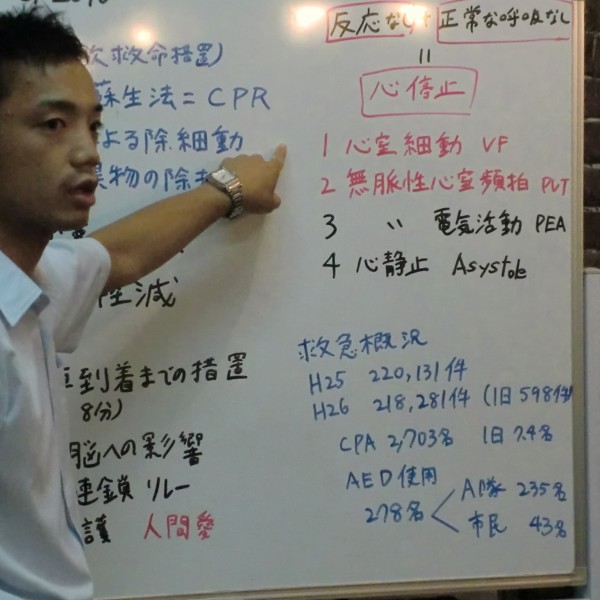 次救命措置)
蘇生法=CPR
よる除細動
異物の除
減
到着までの措置
8分)
脳への影響
連鎖 リレー
護 人間愛
反応なし+正常な呼吸なし
=
心停止
1 心室細動 VF
2 無脈性心室頻拍 PVT
3 〃 電気活動 PEA
4 心静止 Asystole
救急概況
H25 220,131件
H26 218,281件 (1日 598件)
CPA 2,703名 1日 7.4名
AED使用
278名
A隊 235名
市民 43名